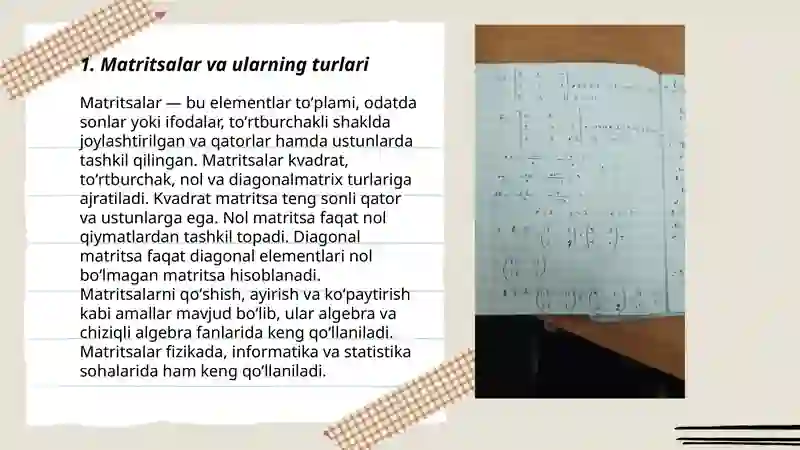 1. Matritsalar va ularning turlari
Matritsalar — bu elementlar to‘plami, odatda
sonlar yoki ifodalar, to‘rtburchakli shaklda
joylashtirilgan va qatorlar hamda ustunlarda
tashkil qilingan. Matritsalar kvadrat,
to‘rtburchak, nol va diagonalmatrix turlariga
ajratiladi. Kvadrat matritsa teng sonli qator
va ustunlarga ega. Nol matritsa faqat nol
qiymatlardan tashkil topadi. Diagonal
matritsa faqat diagonal elementlari nol
bo‘lmagan matritsa hisoblanadi.
Matritsalarni qo‘shish, ayirish va ko‘paytirish
kabi amallar mavjud bo‘lib, ular algebra va
chiziqli algebra fanlarida keng qo‘llaniladi.
Matritsalar fizikada, informatika va statistika
sohalarida ham keng qo‘llaniladi.